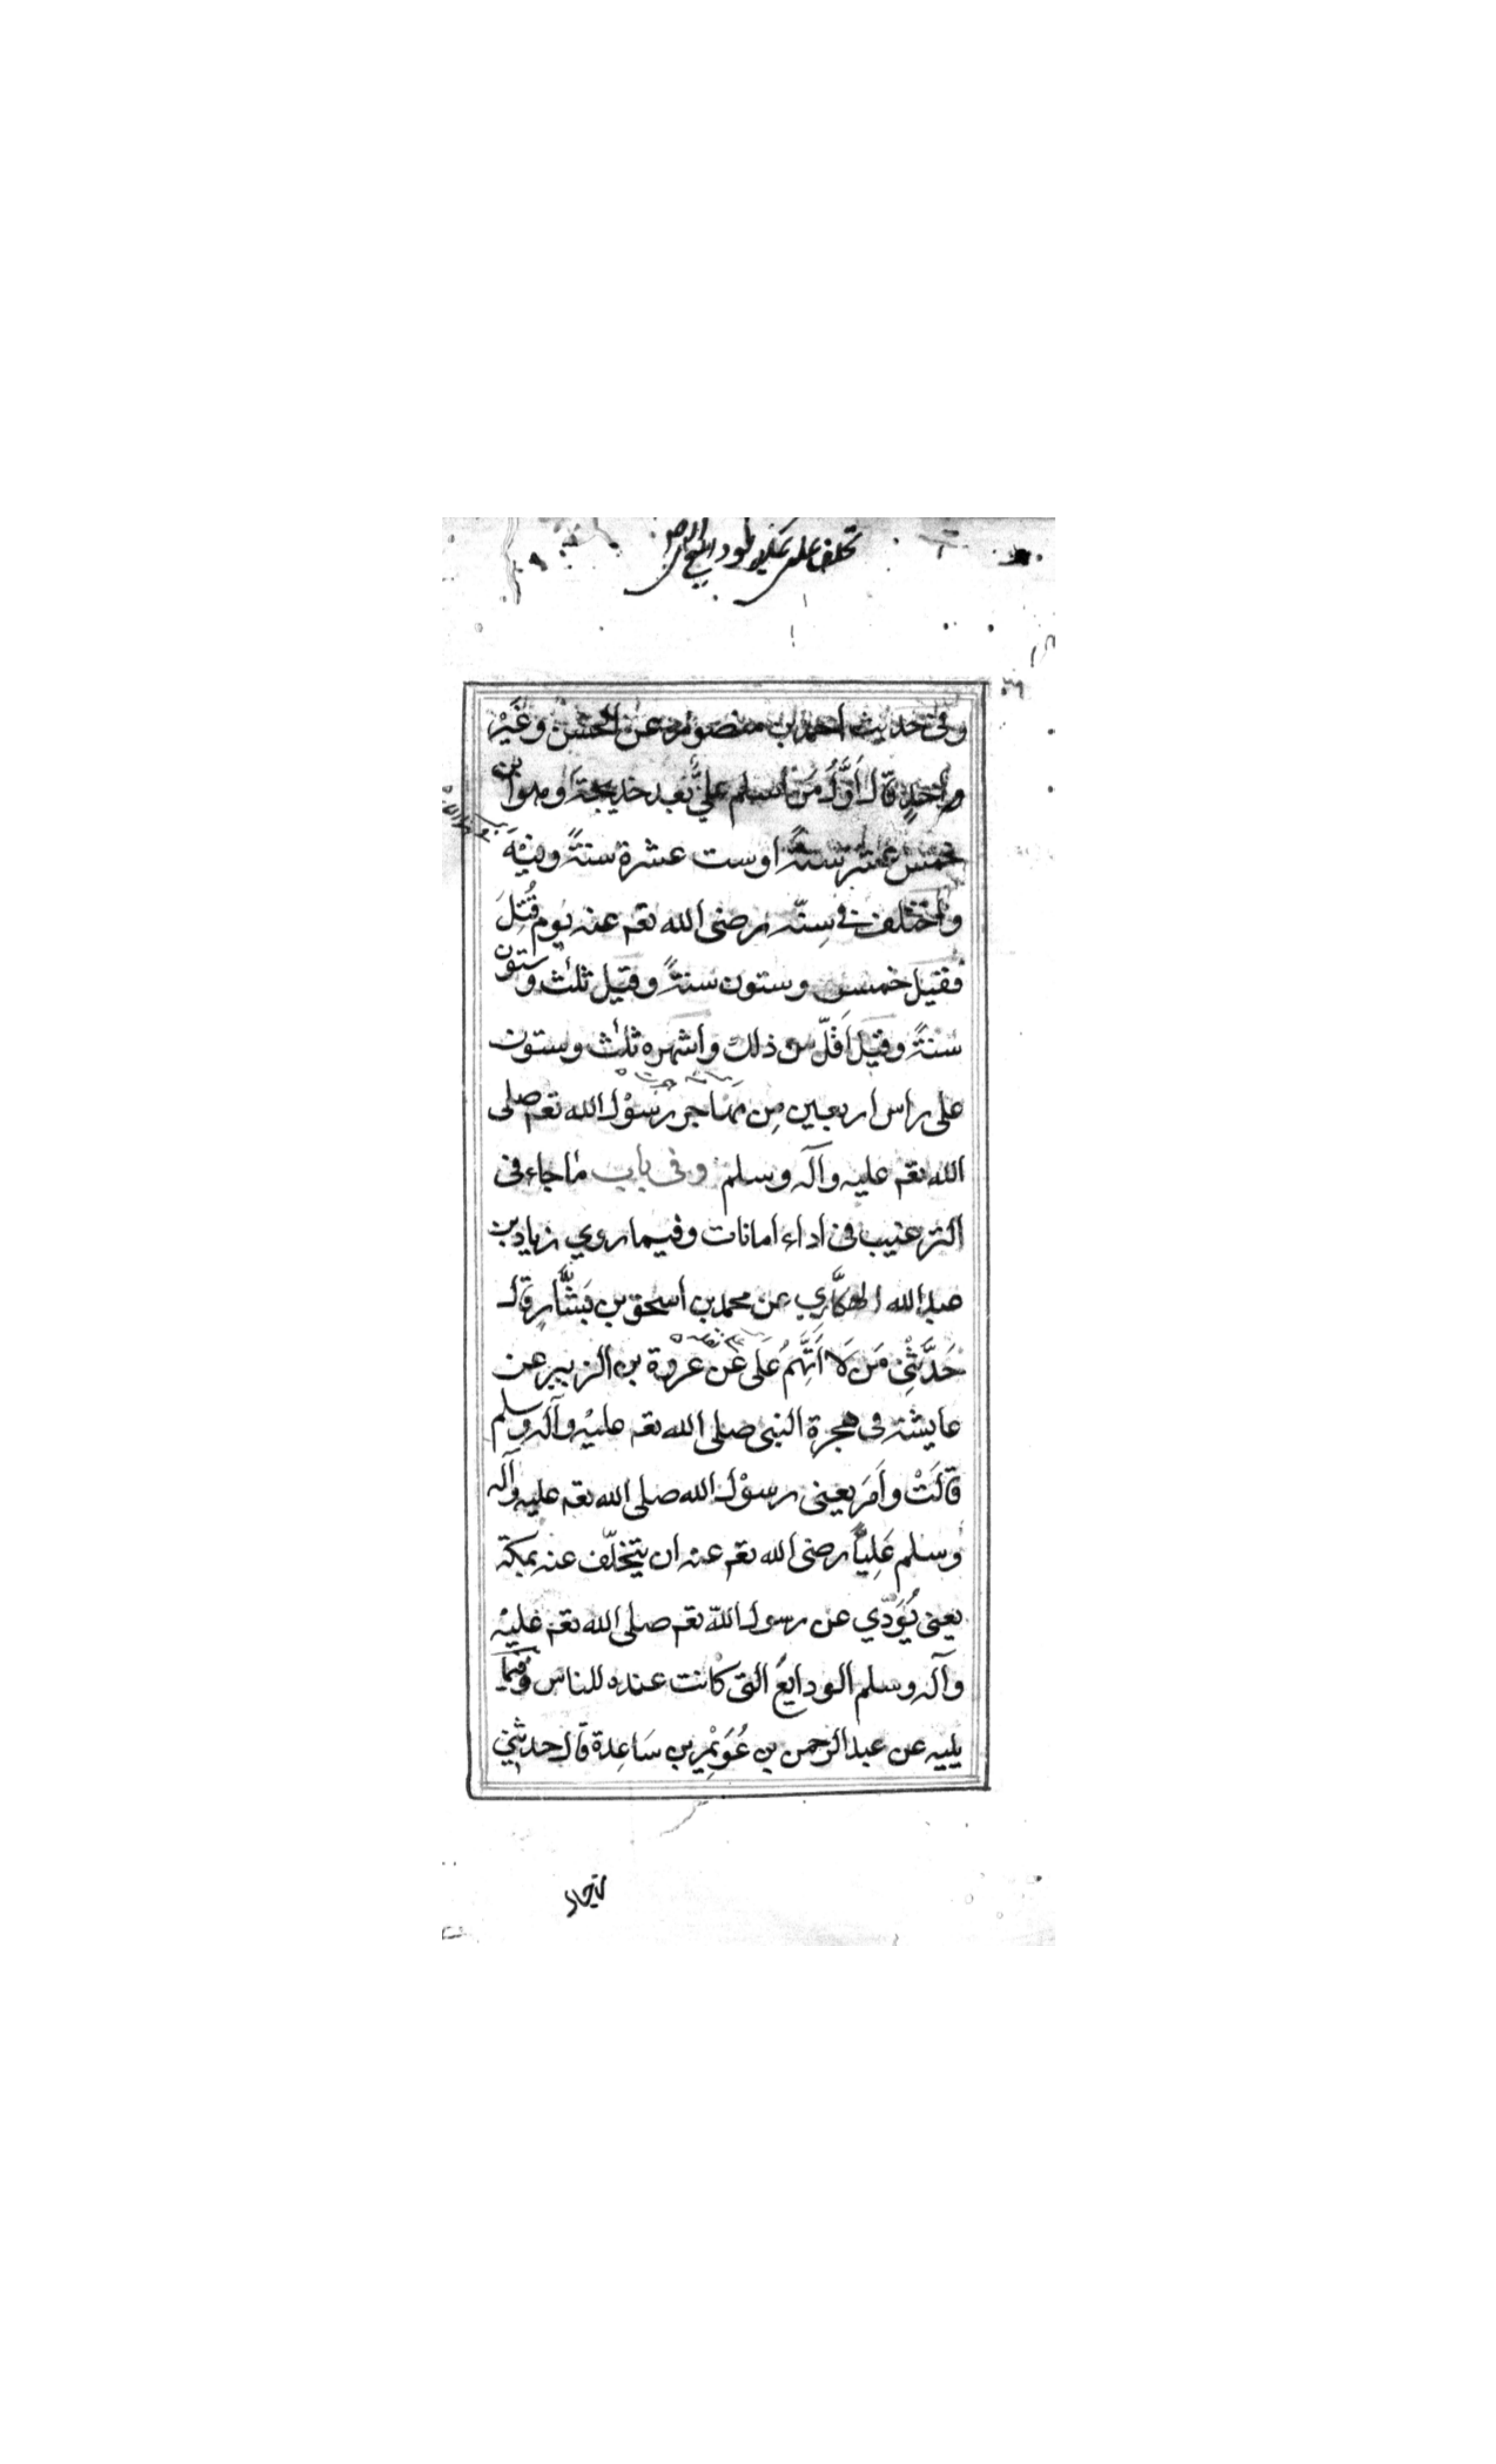 وفي حديث احمد بن منصور عن الحسن وغَيْر
واحدٍ قال اَوَّلُ مَن اسلم عليٌّ بعد خديجة وهو ابن
خمس عشر سنةً اوست عشرة سنةً وفيْهِ
واختلف في سِنّه رضى الله تعم عنه يوم قُتِلَ
فقيل خمس وستون سنةً وقيل ثلث وستون
سنةً وقيل اَقلّ من ذلك واشهره ثلث وستون
على راس اربعين مِن مهاجر رسوْل الله تعم صلى
الله تعم عليه وآله وسلم وفى باب ما جاء فى
الترغيب فى اداء امانات وفيما روي زياد بن
عبد الله الهكَّاري عن محمد بن اسحق بن بَشَّارٍ قال
حَدَّثَنِى مَن لَا اَتَّهِمُ عَلى عَن عروة بن الزبير عن
عايشة فى هجرة النبى صلى الله تعم عليْه وآله وسلم
قالَتْ واَمَرَ يعنى رسوْل الله صلى الله تعم عليه وآله
وسلم عَلِيًّا رضى الله تعم عنه ان يتخلّف عنه بمكة
يعنى يُوَدّي عن رسول الله تعم صلى الله تعم عليْه
وآله وسلم الودايعَ التى كانت عنده للناس وفيما
يليه عن عبد الرحمن بن عُوَيْمِر بن سَاعِدة قال حدثني